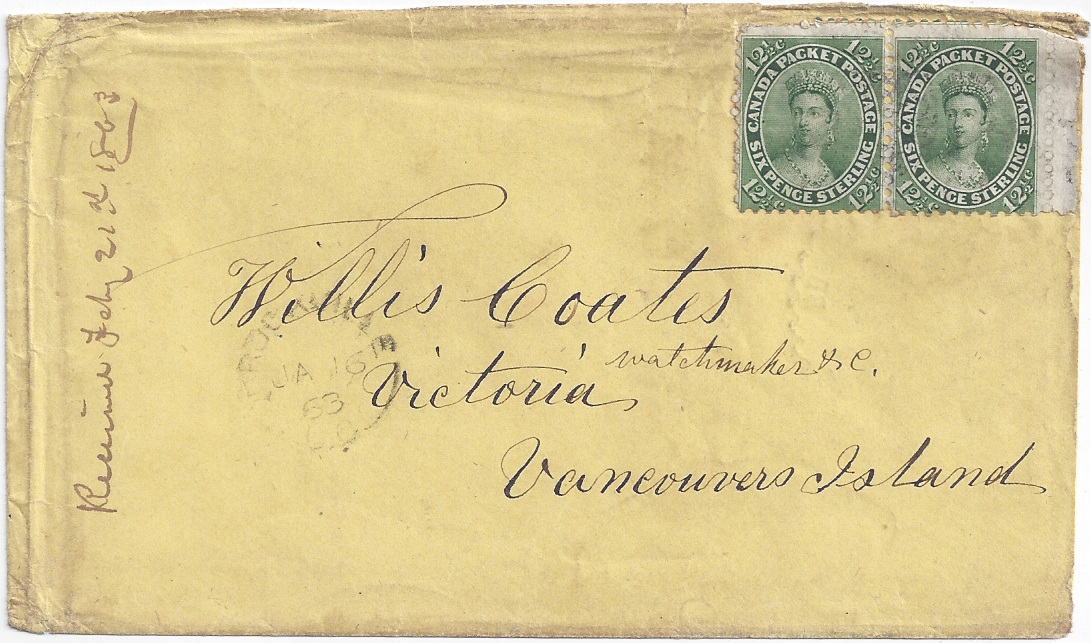 12½c 12½c
CANADA PACKET POSTAGE
SIX PENCE STERLING
12½c 12½c
12½c 12½c
CANADA PACKET POSTAGE
SIX PENCE STERLING
12½c 12½c
Received Feby 21st 1863
Willis Coates
watchmaker &c.
Victoria
Vancouvers Island
JA 16TH
63